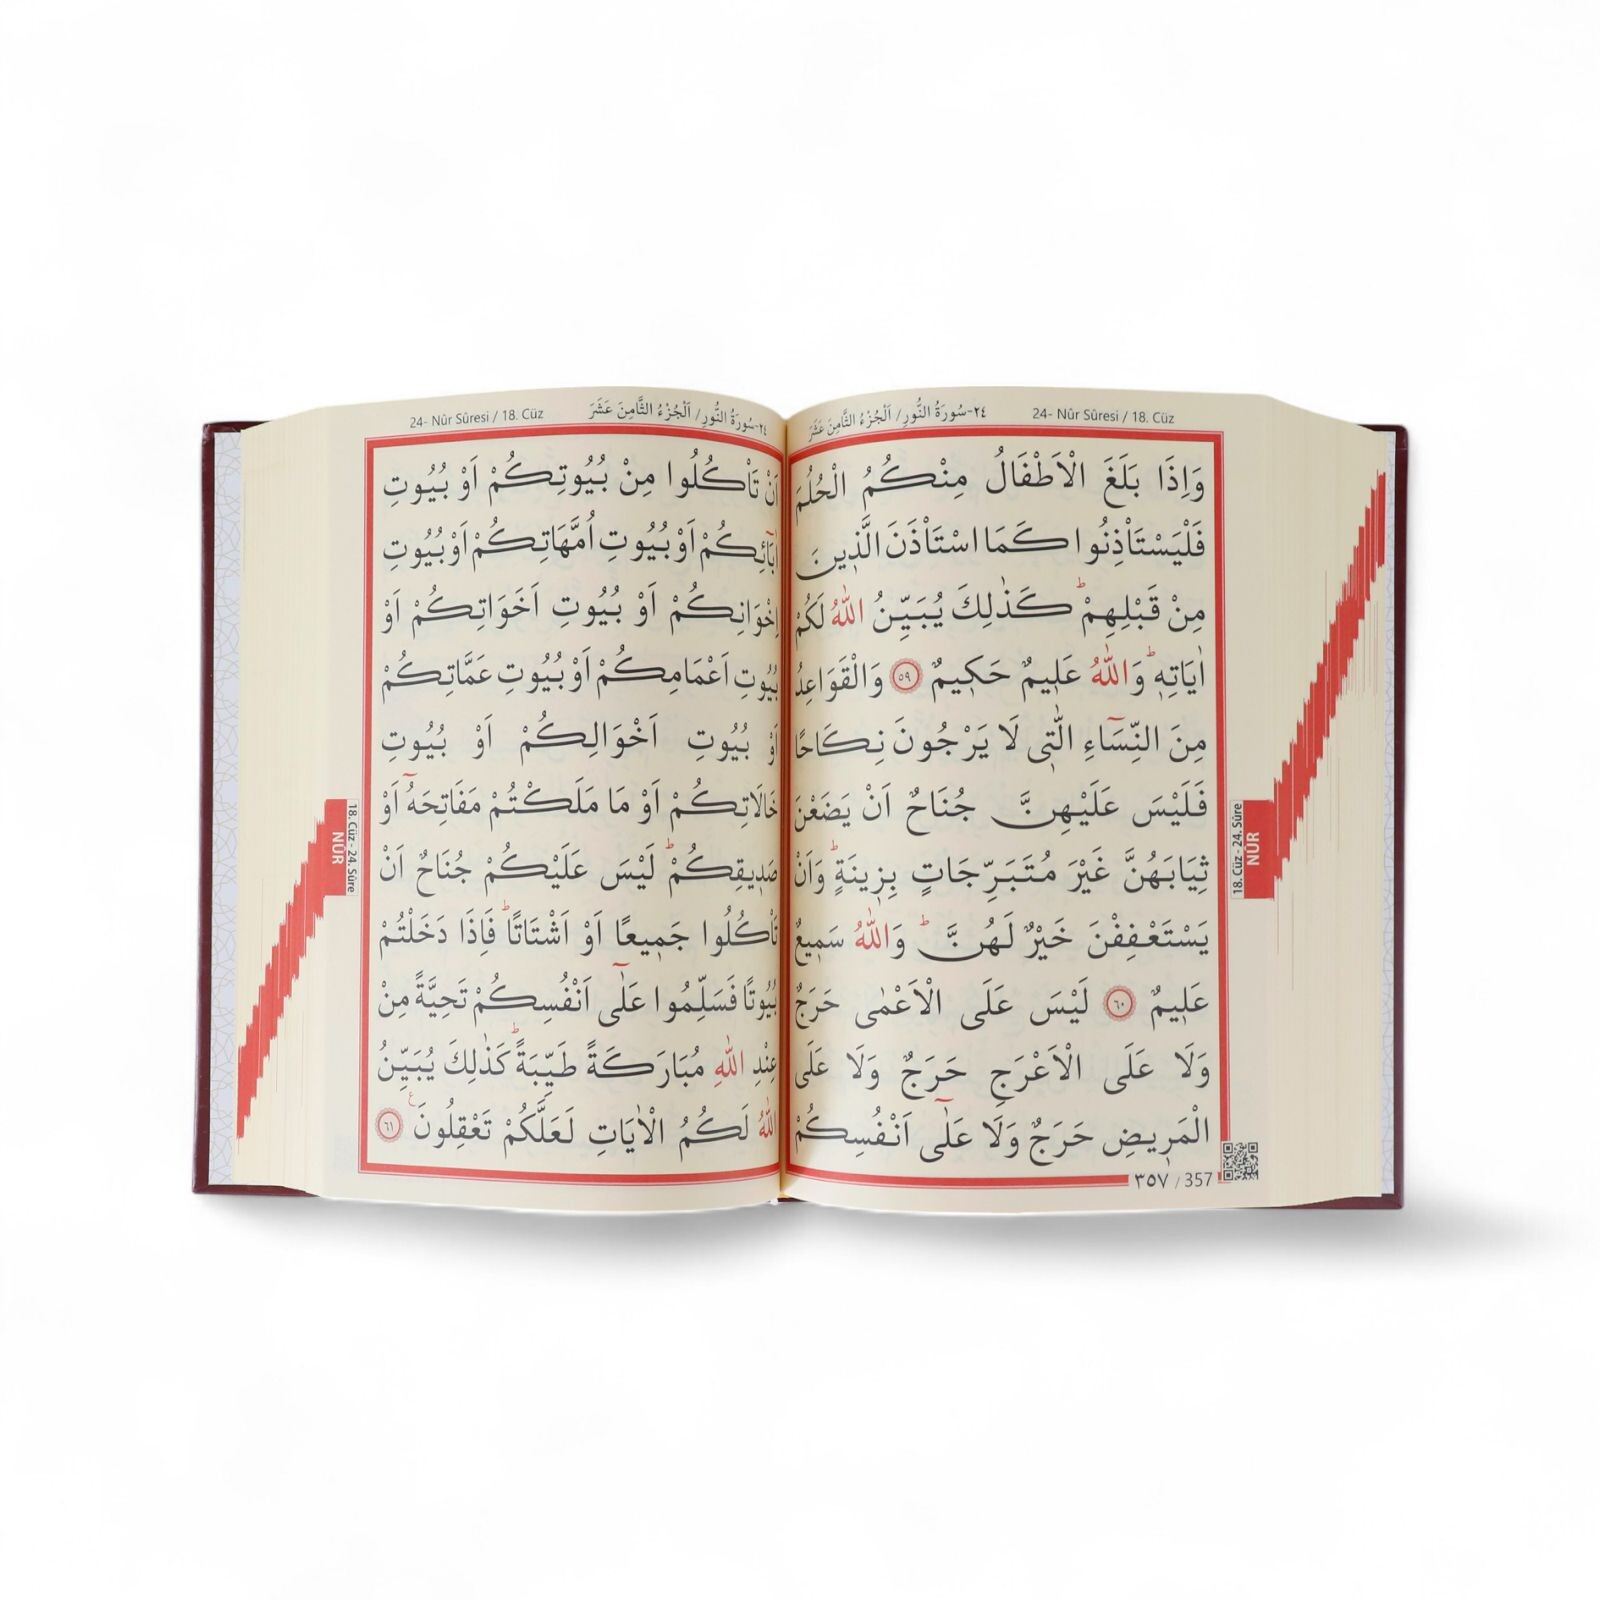 ٢٤-سُورَةُ النُّورِ/ اَلْجُزْءُ الثَّامِنَ عَشَرَ 24- Nûr Sûresi / 18. Cüz
وَاِذَا بَلَغَ الْاَطْفَالُ مِنْكُمُ الْحُلُمَ
فَلْيَسْتَأْذِنُوا كَمَا اسْتَأْذَنَ الَّذ۪ينَ
مِنْ قَبْلِهِمْۜ كَذٰلِكَ يُبَيِّنُ اللّٰهُ لَكُمْ
اٰيَاتِه۪ۜ وَاللّٰهُ عَل۪يمٌ حَك۪يمٌ ٥٩ وَالْقَوَاعِدُ
مِنَ النِّسَٓاءِ الّٰت۪ي لَا يَرْجُونَ نِكَاحًا
فَلَيْسَ عَلَيْهِنَّ جُنَاحٌ اَنْ يَضَعْنَ
ثِيَابَهُنَّ غَيْرَ مُتَبَرِّجَاتٍ بِز۪ينَةٍۜ وَاَنْ
يَسْتَعْفِفْنَ خَيْرٌ لَهُنَّۜ وَاللّٰهُ سَم۪يعٌ
عَل۪يمٌ ٦٠ لَيْسَ عَلَى الْاَعْمٰى حَرَجٌ
وَلَا عَلَى الْاَعْرَجِ حَرَجٌ وَلَا عَلَى
الْمَر۪يضِ حَرَجٌ وَلَا عَلٰٓى اَنْفُسِكُمْ
٣٥٧ / 357
18. Cüz - 24. Sûre
NÛR
٢٤-سُورَةُ النُّورِ/ اَلْجُزْءُ الثَّامِنَ عَشَرَ 24- Nûr Sûresi / 18. Cüz
اَنْ تَأْكُلُوا مِنْ بُيُوتِكُمْ اَوْ بُيُوتِ
اٰبَٓائِكُمْ اَوْ بُيُوتِ اُمَّهَاتِكُمْ اَوْ بُيُوتِ
اِخْوَانِكُمْ اَوْ بُيُوتِ اَخَوَاتِكُمْ اَوْ
بُيُوتِ اَعْمَامِكُمْ اَوْ بُيُوتِ عَمَّاتِكُمْ
اَوْ بُيُوتِ اَخْوَالِكُمْ اَوْ بُيُوتِ
خَالَاتِكُمْ اَوْ مَا مَلَكْتُمْ مَفَاتِحَهُٓ اَوْ
صَد۪يقِكُمْۜ لَيْسَ عَلَيْكُمْ جُنَاحٌ اَنْ
تَأْكُلُوا جَم۪يعًا اَوْ اَشْتَاتًاۜ فَاِذَا دَخَلْتُمْ
بُيُوتًا فَسَلِّمُوا عَلٰٓى اَنْفُسِكُمْ تَحِيَّةً مِنْ
عِنْدِ اللّٰهِ مُبَارَكَةً طَيِّبَةًۜ كَذٰلِكَ يُبَيِّنُ
اللّٰهُ لَكُمُ الْاٰيَاتِ لَعَلَّكُمْ تَعْقِلُونَ ع ٦١
18. Cüz - 24. Sûre
NÛR